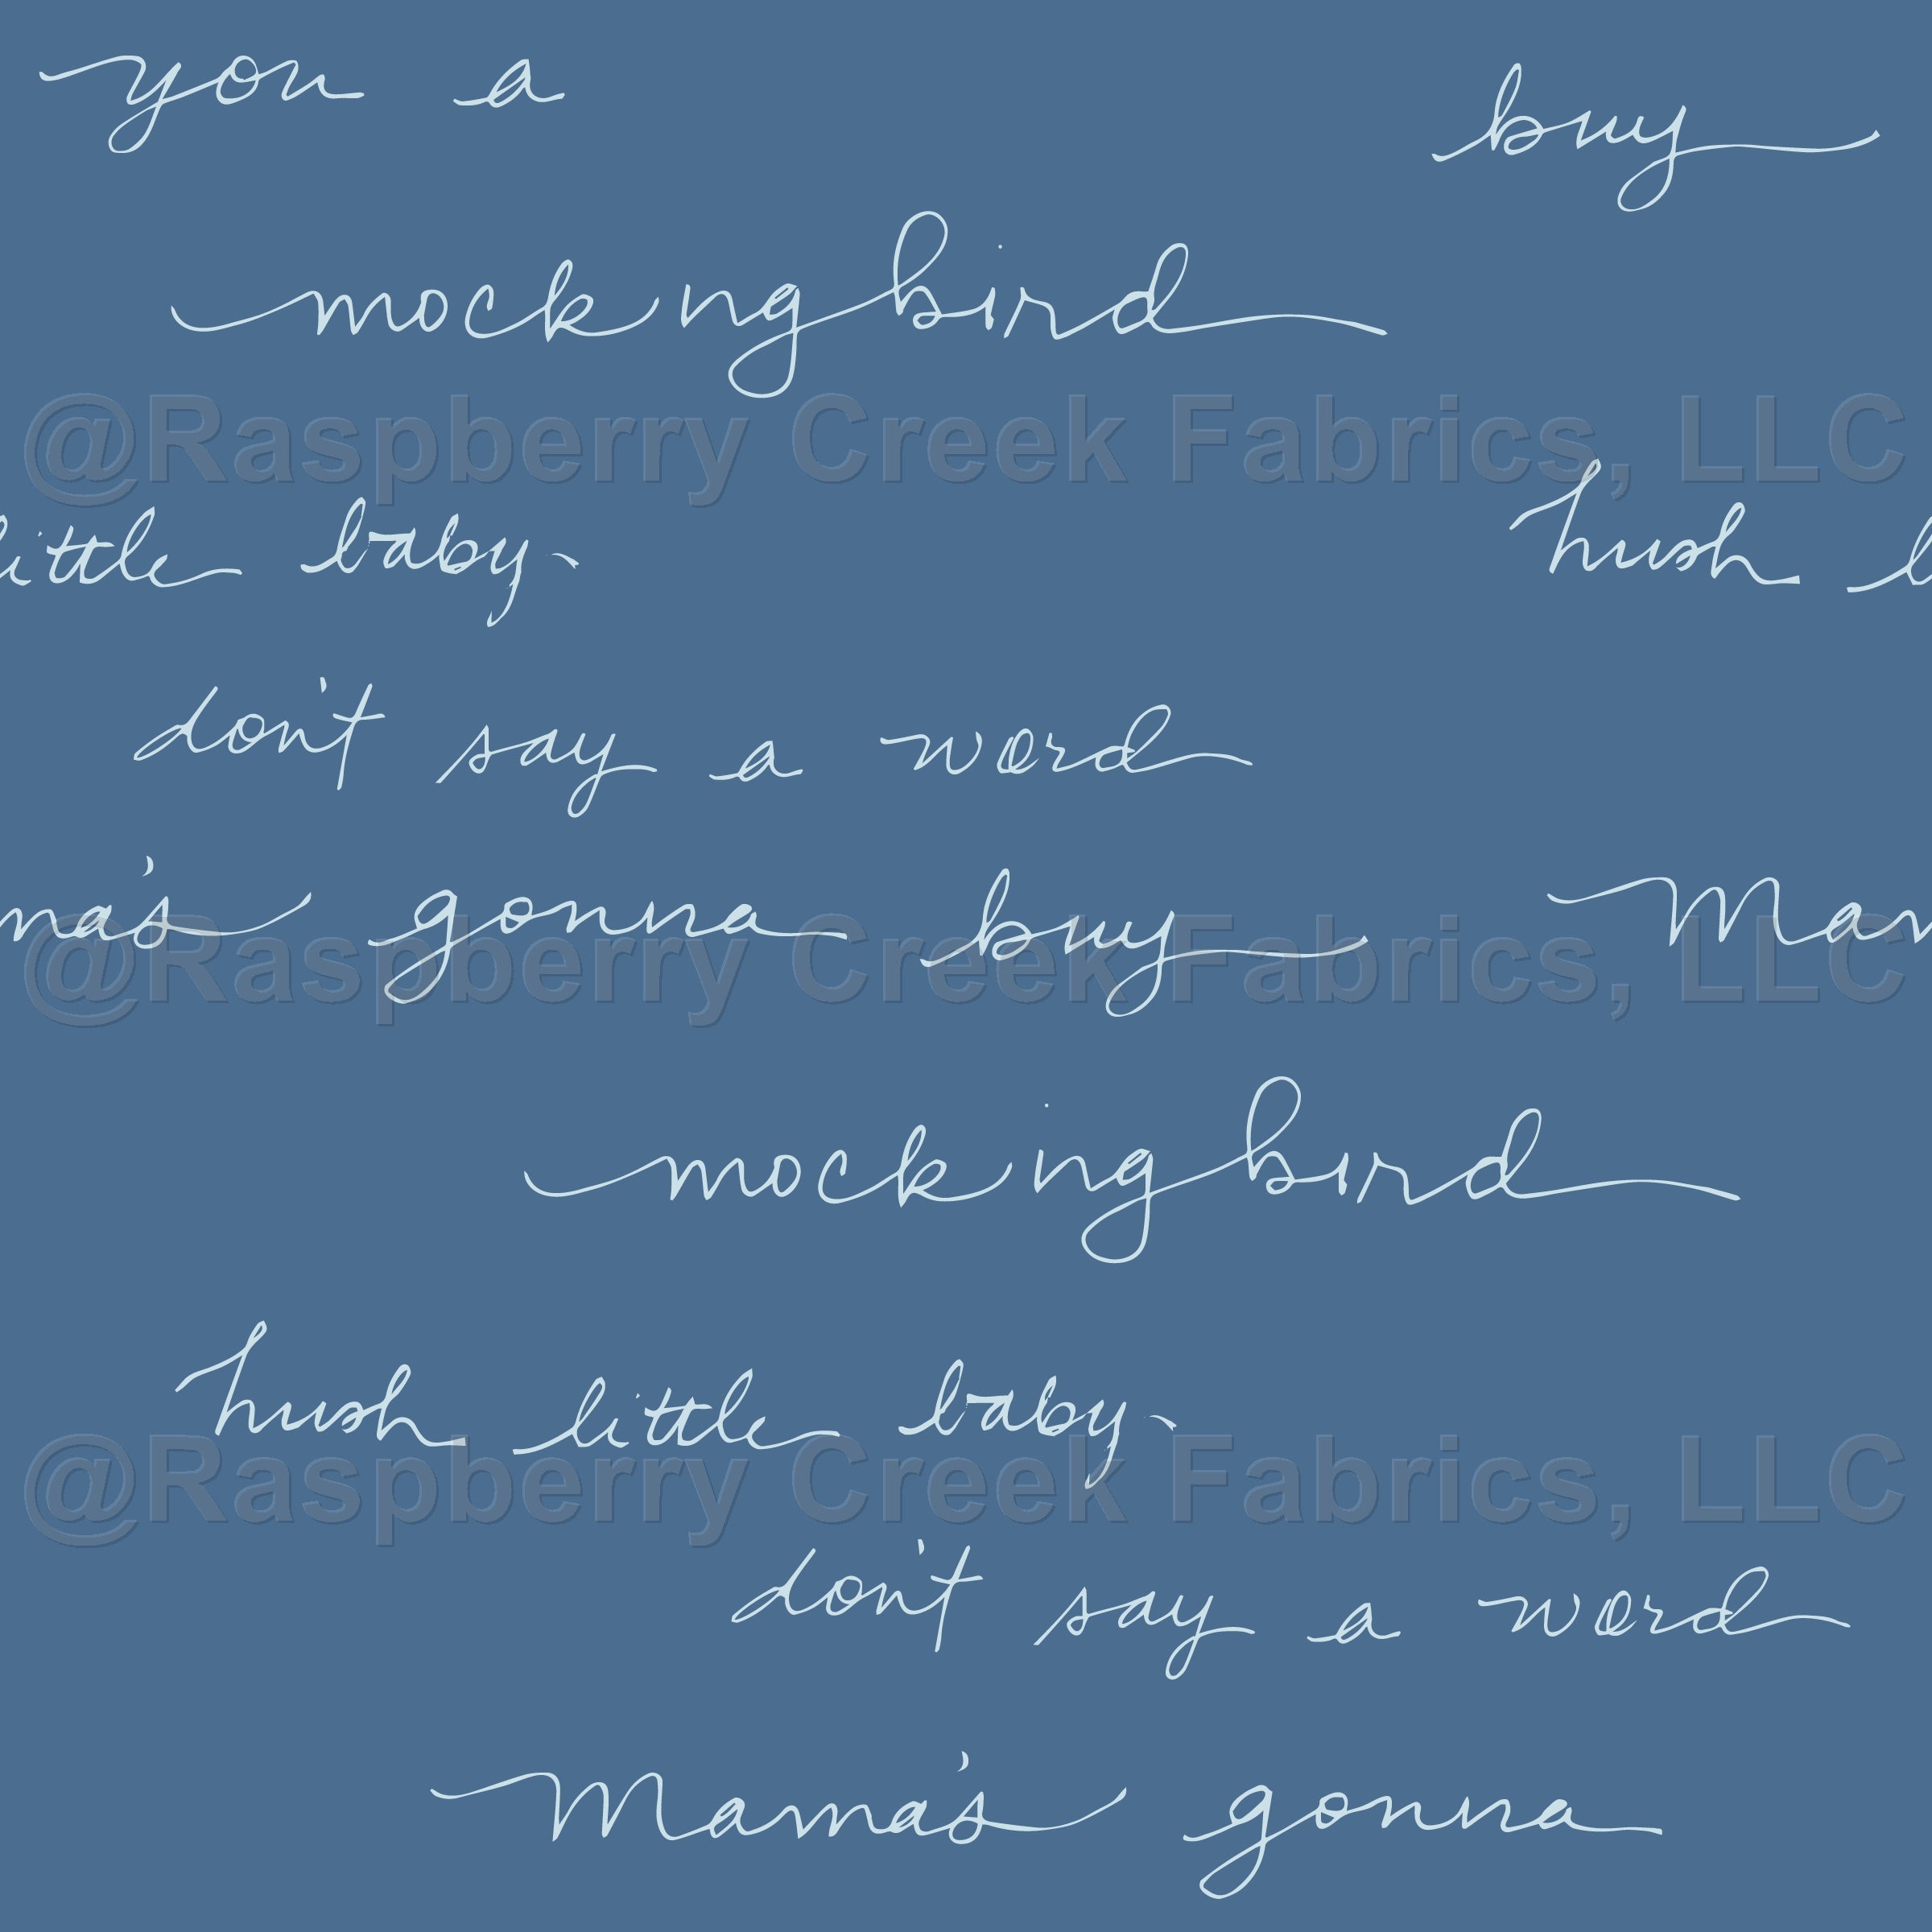 you a buy
mockingbird
@Raspberry Creek Fabrics, LLC
little baby, hush l
don't say a word
ma's gonna buy Mam
@Raspberry Creek Fabrics, LLC
mockingbird
hush little baby,
@Raspberry Creek Fabrics, LLC
don't say a word
Mama's gonna